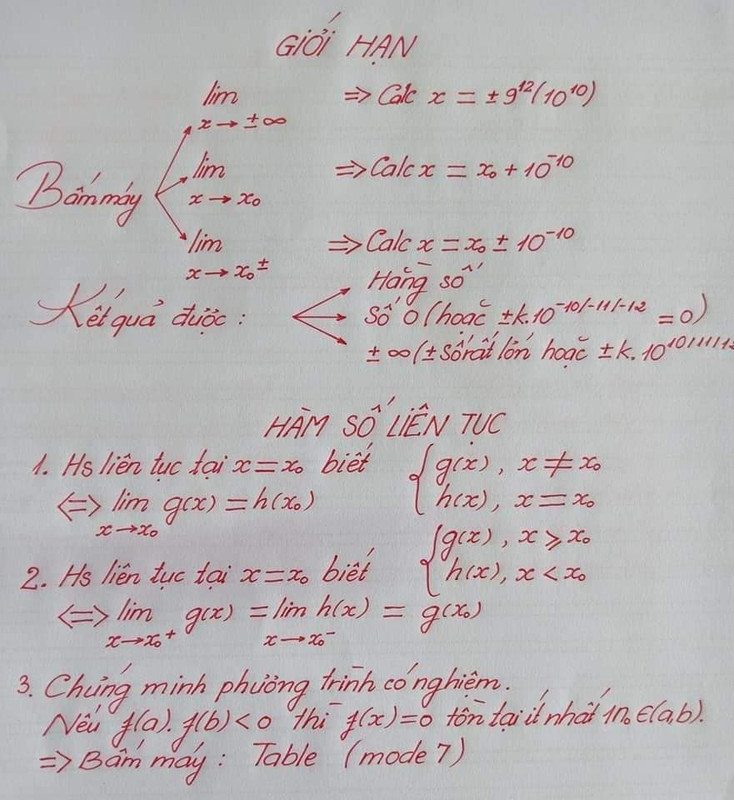 GIỚI HẠN
lim x → ±∞ => Calc x = ± 9^12 (10^10)
Bấm máy lim x → x₀ => Calc x = x₀ + 10^-10
lim x → x₀± => Calc x = x₀ ± 10^-10
Kết quả được :
Hằng số
Số 0 (hoặc ±k.10^-10/-11/-12 = 0)
± ∞ (± số rất lớn hoặc ±k. 10^10/11/12
HÀM SỐ LIÊN TỤC
1. Hs liên tục tại x = x₀ biết { g(x), x ≠ x₀
h(x), x = x₀
<=> lim x→x₀ g(x) = h(x₀)
2. Hs liên tục tại x = x₀ biết { g(x), x ⩾ x₀
h(x), x < x₀
<=> lim x→x₀⁺ g(x) = lim x→x₀⁻ h(x) = g(x₀)
3. Chứng minh phương trình có nghiệm.
Nếu f(a). f(b) < 0 thì f(x) = 0 tồn tại ít nhất 1n₀ ∈ (a,b).
=> Bấm máy : Table (mode 7)